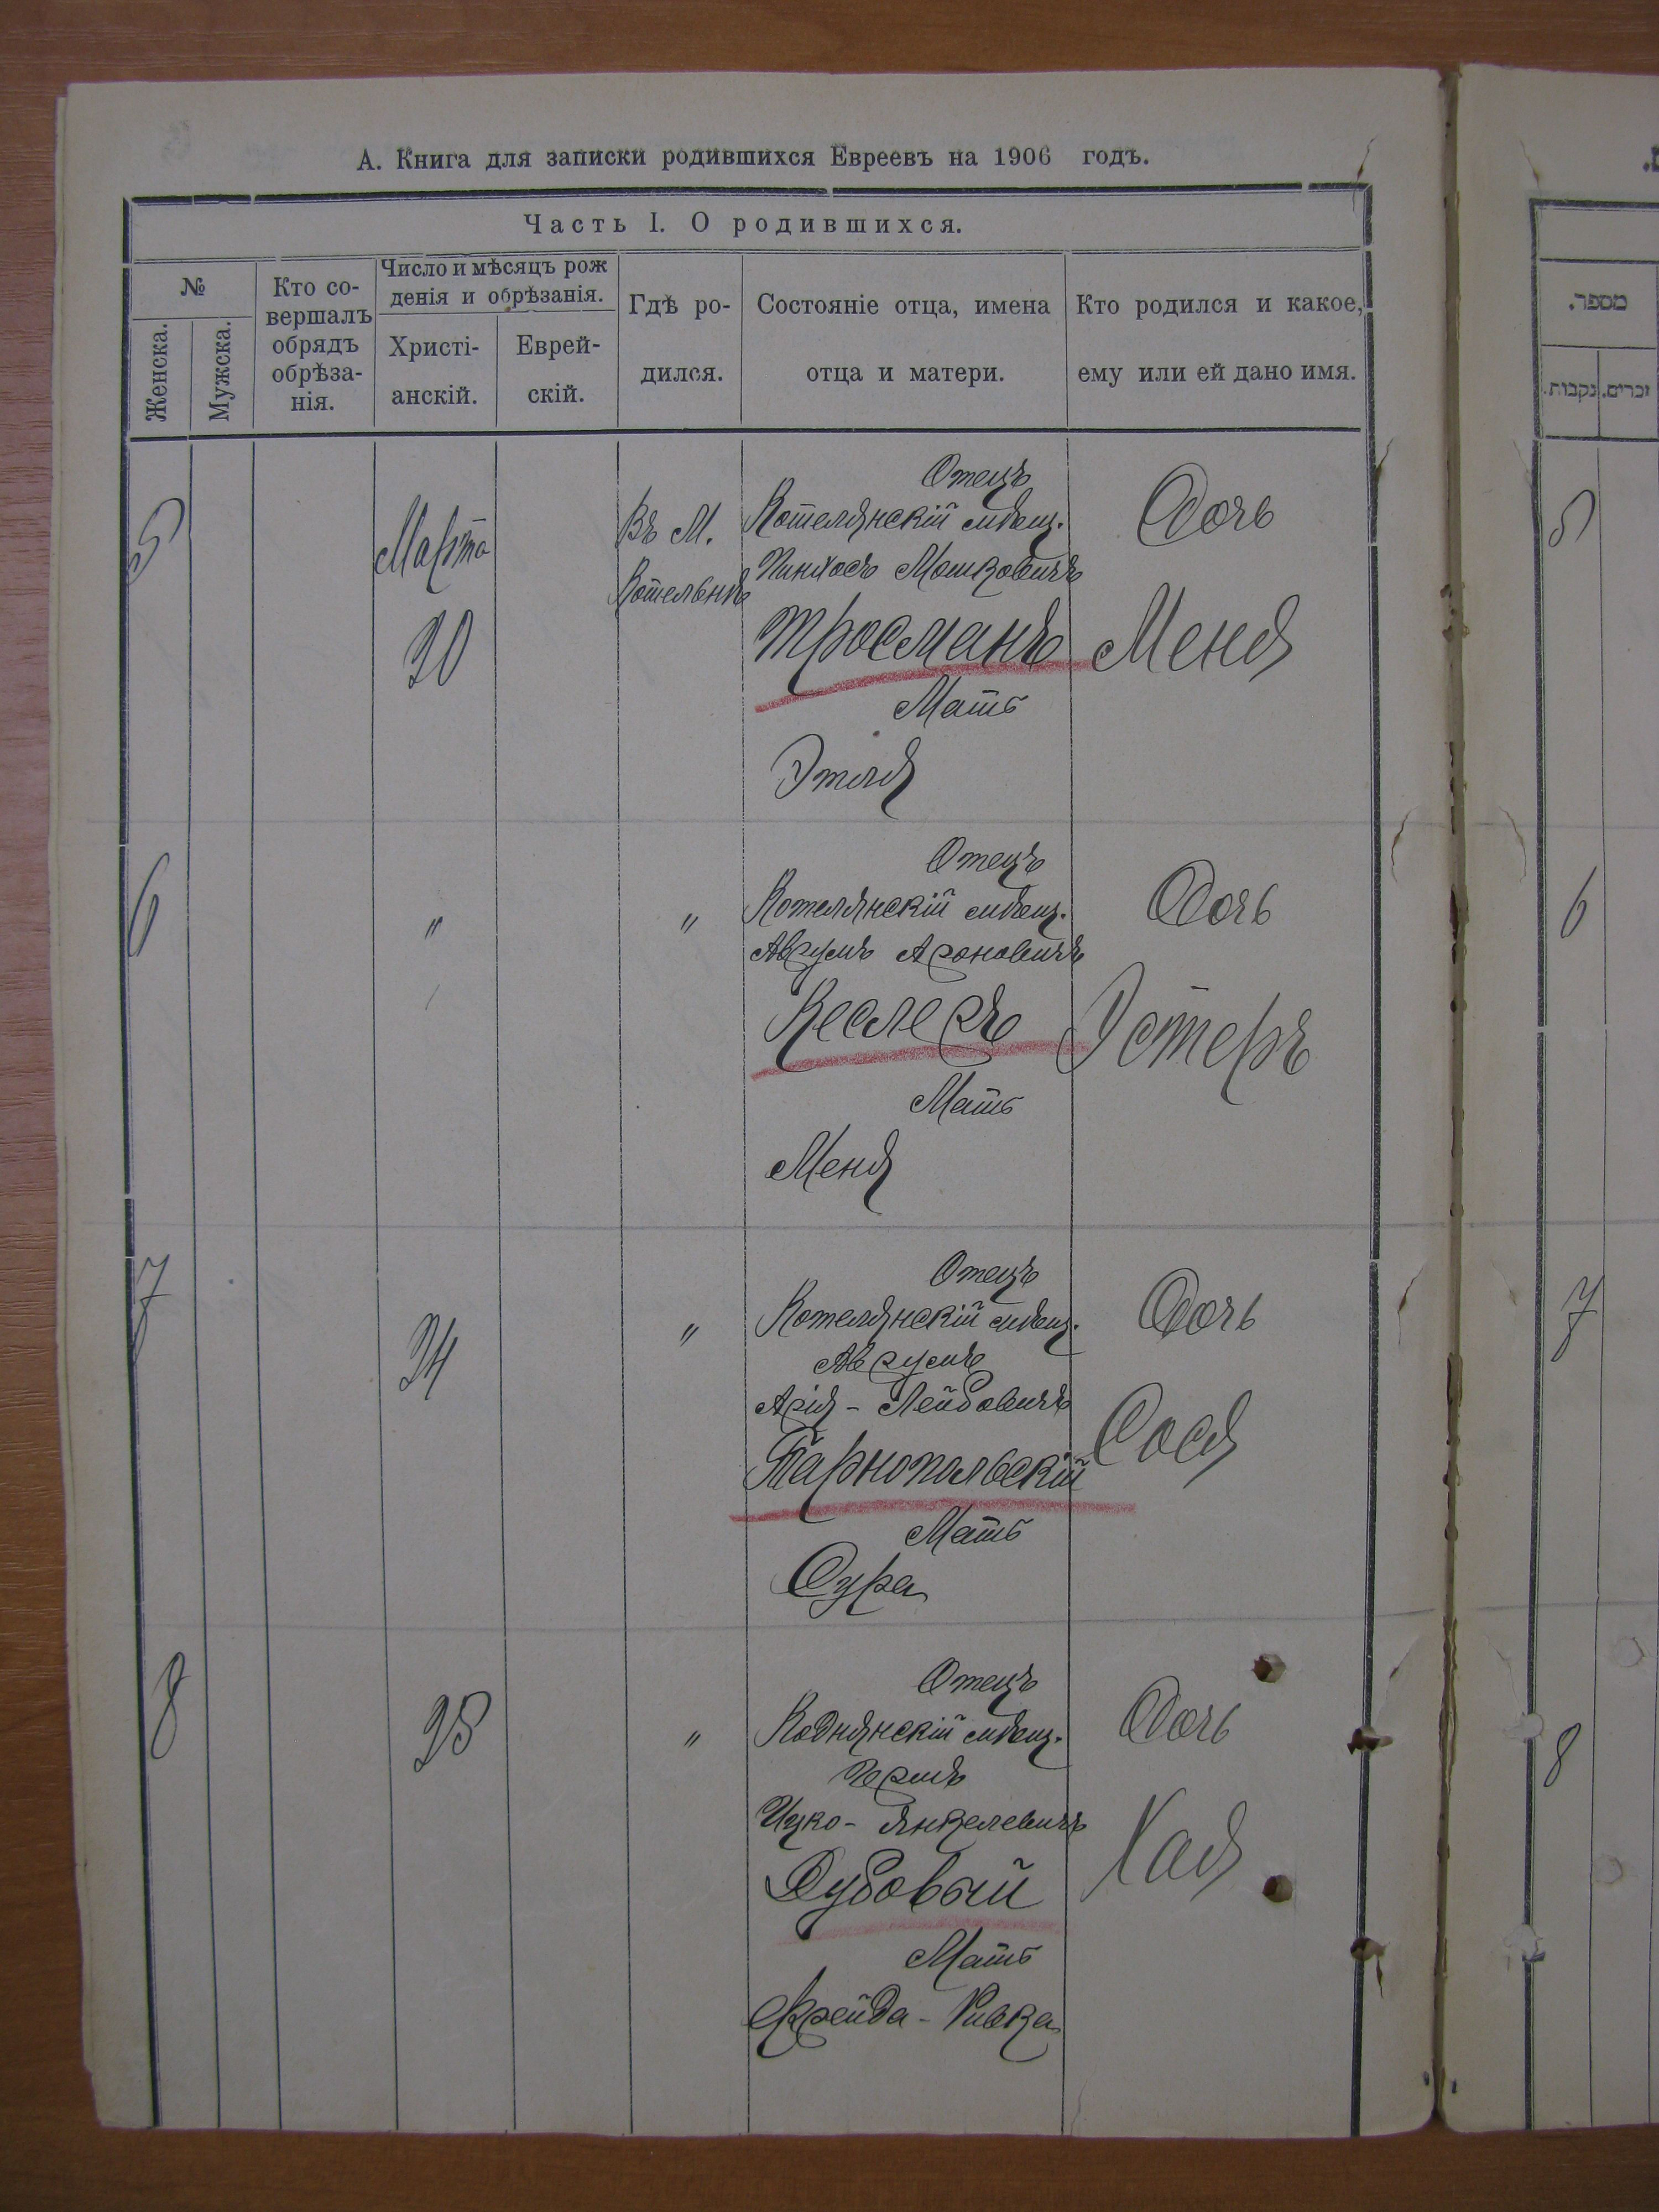 А. Книга для записки родившихся Евреевъ на 1906 годъ.
Часть I. О родившихся.
№
Женска.
Мужска.
Кто со-
вершалъ
обрядъ
обрѣза-
нія.
Число и мѣсяцъ рож
денія и обрѣзанія.
Христі-
анскій.
Еврей-
скій.
Гдѣ ро-
дился.
Состояніе отца, имена
отца и матери.
Кто родился и какое,
ему или ей дано имя.
5
Марта
20
Въ М.
Котельнѣ
Отецъ
Котелянскій мѣщ.
Пинхосъ Мошковичъ
Тросманъ
Мать
Этля
Дочь
Меня
6
"
"
Отецъ
Котелянскій мѣщ.
Аврумъ Ароновичъ
Кеслеръ
Мать
Меня
Дочь
Эстеръ
7
24
"
Отецъ
Котелянскій мѣщ.
Аврумъ
Арія-Лейбовичъ
Тарнопольскій
Мать
Сура
Дочь
Сося
8
25
"
Отецъ
Коднянскій мѣщ.
Ицко-Янкелевичъ
Дубовый
Мать
Фрейда-Ривка
Дочь
Хая
מספר.
נקבות.
זכרים.
5
6
7
8